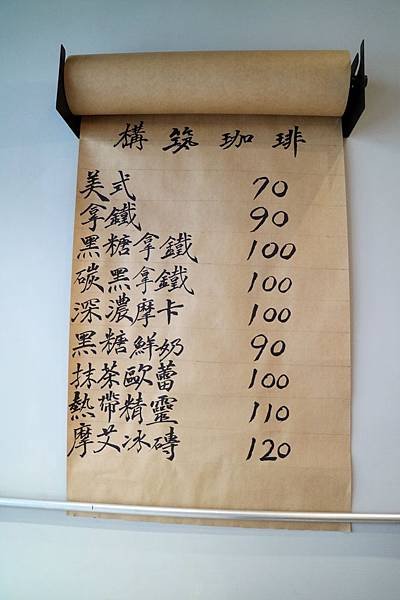 構築珈琲
美式 70
拿鐵 90
黑糖拿鐵 100
碳黑拿鐵 100
深濃摩卡 100
黑糖鮮奶 90
抹茶歐蕾 100
熱帶精靈 110
摩艾冰磚 120